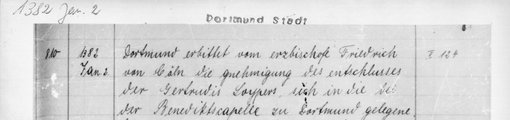 1382 Jan. 2
Dortmund Stadt
Dortmund erbittet vom erzbischof Friedrich
1382 Jan 2
von Cöln die gnehmigung des entschlusses
der Gertrudis Loypers, sich in die bei
der Benediktscapelle zu Dortmund gelegene